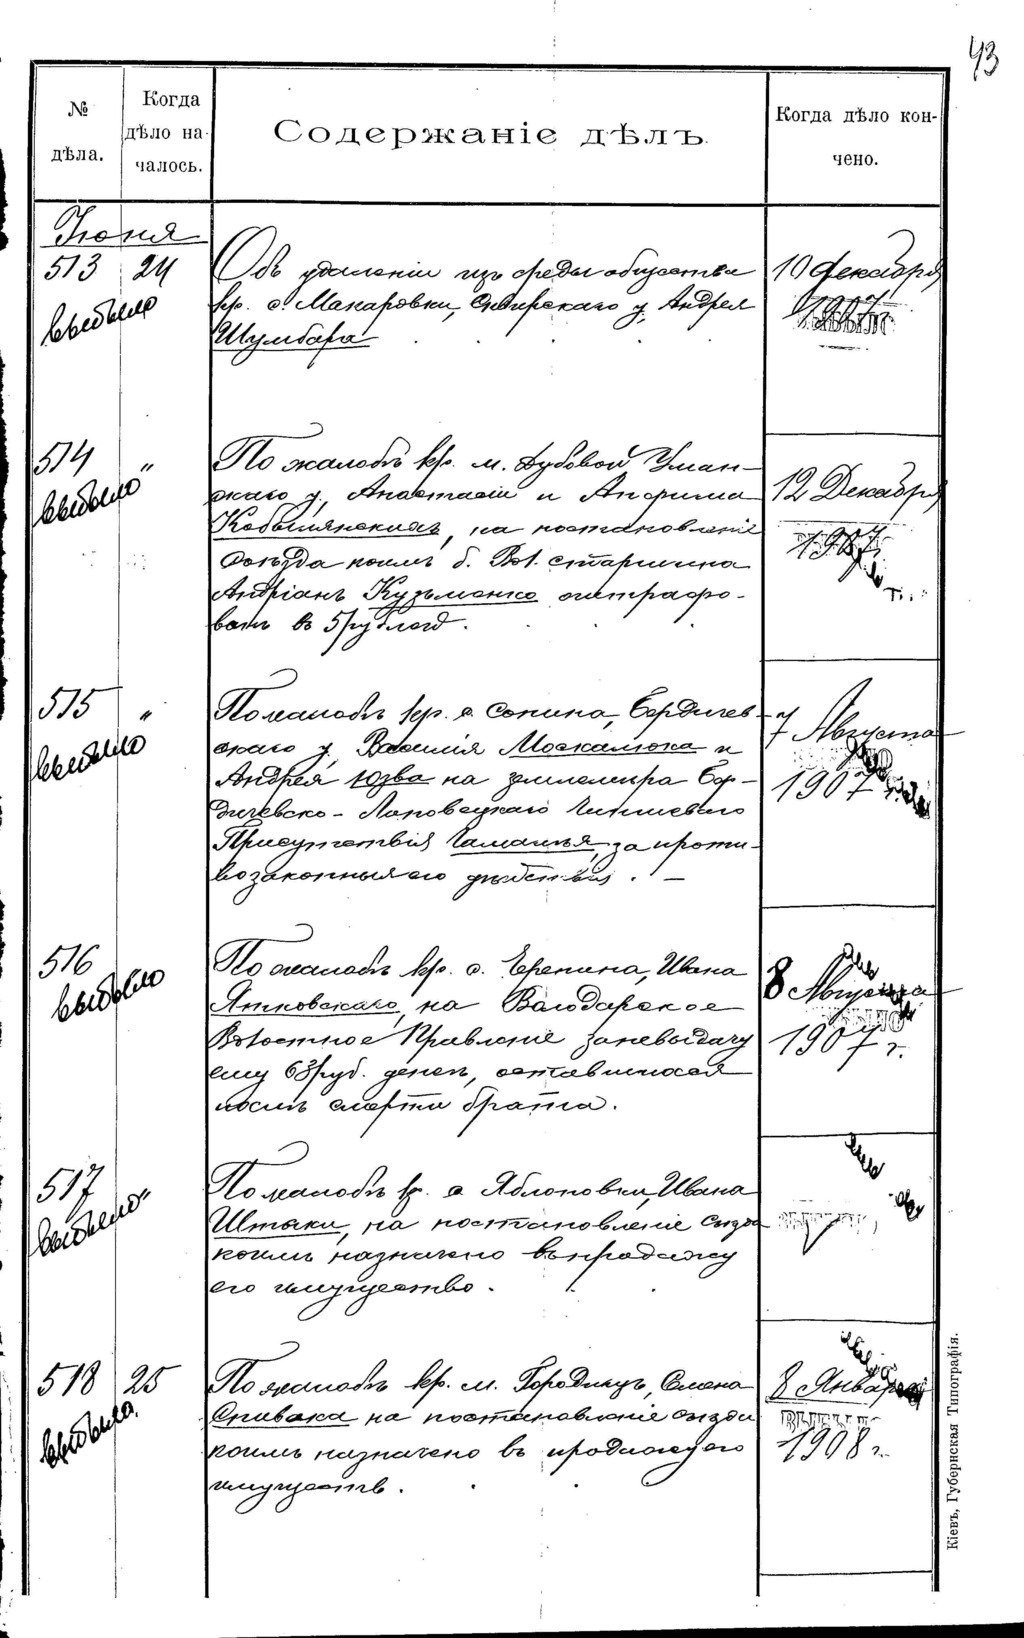 43
№ дѣла.
Когда дѣло началось.
Содержаніе дѣлъ.
Когда дѣло кончено.
Іюня
513 24 Объ удаленіи изъ среды общества
10 Декабря
выбыло
кр. с. Макаровки, Сквирскаго у, Андрея
1907
Шумбара
514 " По жалобѣ кр. м. Дубовой Уман-
12 Декабря
выбыло
скаго у, Анастасіи и Анфима
Кобылянскихъ, на постановленіе
1907
коимъ б. Вол. старшина
Андріанъ Кузьменко оштрафо-
ванъ въ 5 рублей.
515 " По жалобѣ кр. с. Сопина, Бердичев-
7 Августа
выбыло
скаго у, Василія Москалюка и
Андрея Юзва на землемѣра Бер-
1907 г.
дичевско-Липовецкаго Чиншеваго
Присутствія за проти-
возаконныя его дѣйствія. —
516 По жалобѣ кр. с. Черепина, Ивана
8 Августа
выбыло
Ятковскаго, на Володарское
Волостное Правленіе за невыдачу
1907 г.
ему 63 руб. денегъ, оставшихся
послѣ смерти брата.
517 " По жалобѣ кр. с. Яблоновки, Ивана
выбыло
Штыки, на постановленіе Съѣзда
коимъ назначено въ продажу
его имущество.
518 25 По жалобѣ кр. м. Городище, Семена
8 Января
выбыла
Спивака на постановленіе Съѣзда
коимъ назначено въ продажу его
1908 г.
имуществ.
Кіевъ, Губернская Типографія.